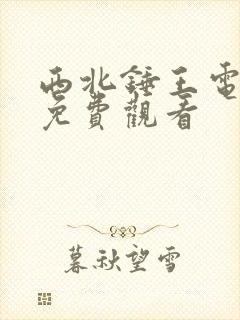 西北錘王電
免費觀看
暮秋望雪